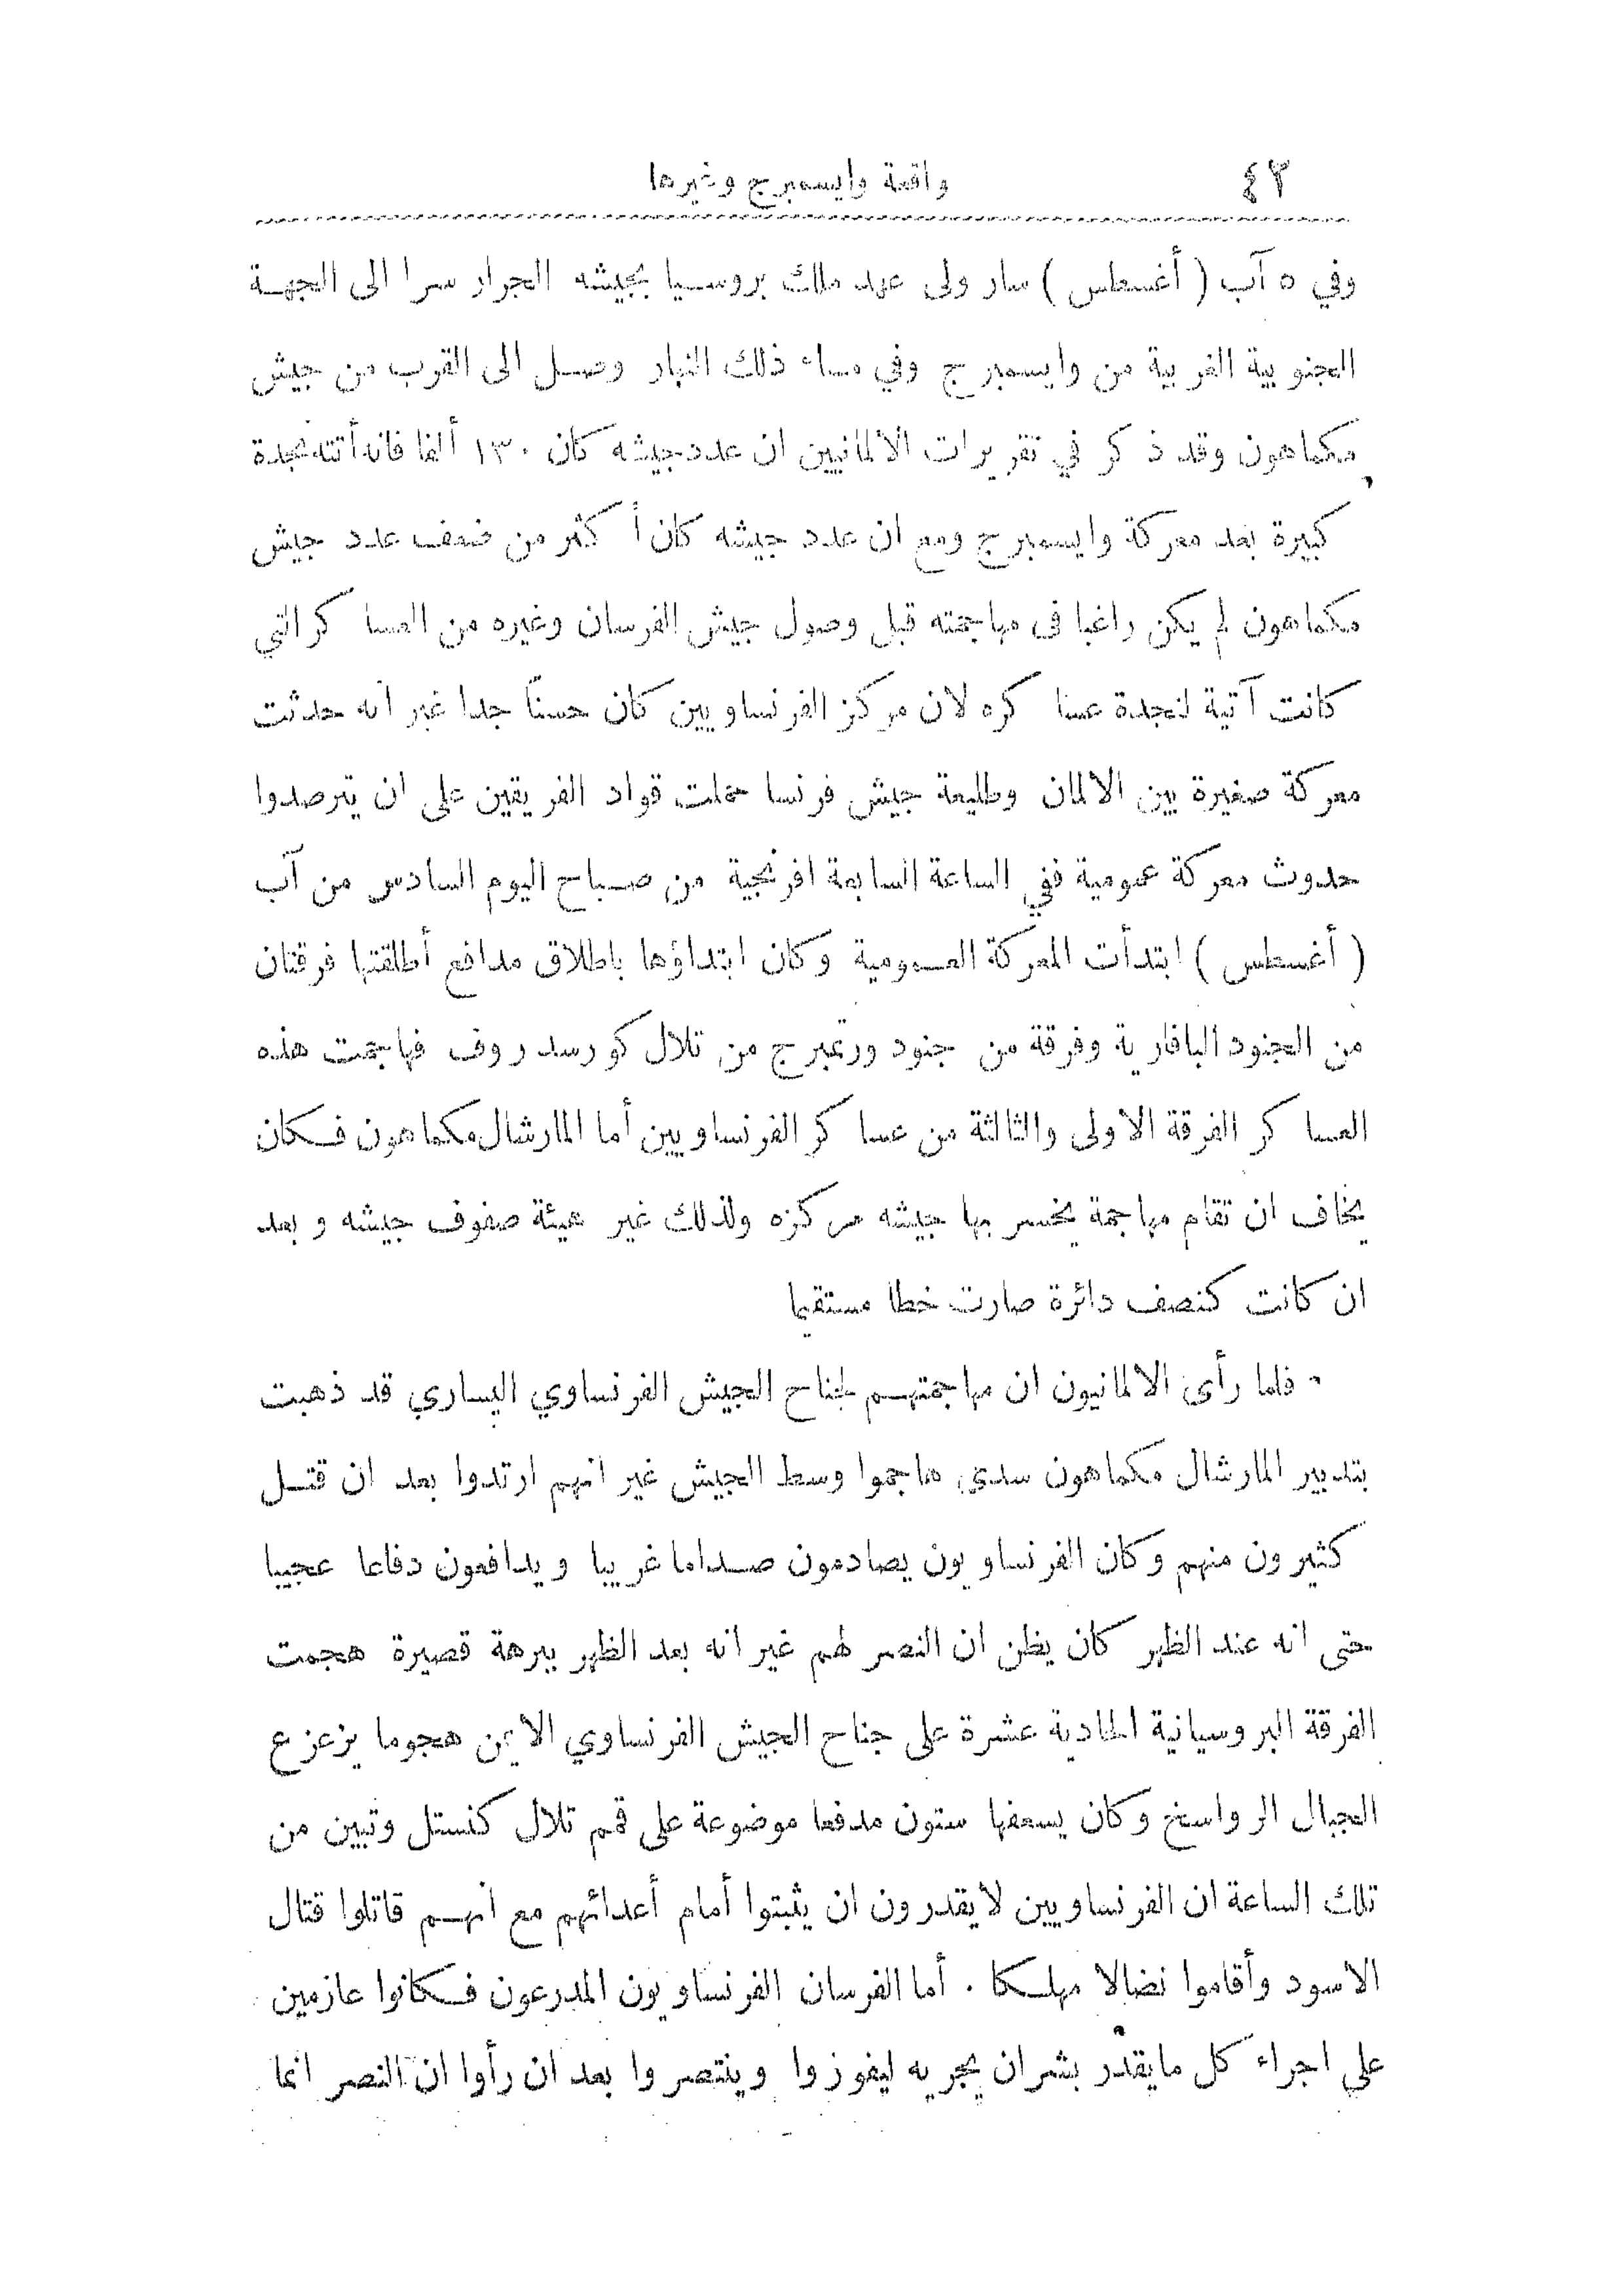 ٤٢
واقعة وايسمبرج وغيرها
وفي ٥ آب ( أغسطس ) سار ولى عهد ملك بروسيا بجيشه الجرار سرا الى الجهة
الجنوبية الغربية من وايسمبرج وفي مساء ذلك النهار وصل الى القرب من جيش
مكماهون وقد ذكر في تقريرات الألمانيين ان عدد جيشه كان ١٣٠ ألفا فانه أتته نجدة
كبيرة بعد معركة وايسمبرج ومع ان عدد جيشه كان أكثر من ضعف عدد جيش
مكماهون لم يكن راغبا فى مهاجمته قبل وصول جيش الفرسان وغيره من العساكر التي
كانت آتية لنجدة عساكره لان مركز الفرنساويين كان حسناً جدا غير انه حدثت
معركة صغيرة بين الالمان وطليعة جيش فرنسا حملت قواد الفريقين على ان يترصدوا
حدوث معركة عمومية ففي الساعة السابعة افرنجية من صباح اليوم السادس من آب
( أغسطس ) ابتدأت المعركة العمومية وكان ابتداؤها باطلاق مدافع أطلقتها فرقتان
من الجنود البافارية وفرقة من جنود ورتمبرج من تلال كورسدروف فهاجمت هذه
العساكر الفرقة الاولى والثالثة من عساكر الفرنساويين أما المارشال مكماهون فكان
يخاف ان تقام مهاجمة يخسر بها جيشه مركزه ولذلك غير هيئة صفوف جيشه وبعد
ان كانت كنصف دائرة صارت خطا مستقيما
فلما رأى الالمانيون ان مهاجمتهم لجناح الجيش الفرنساوي اليساري قد ذهبت
بتدبير المارشال مكماهون سدى هاجموا وسط الجيش غير انهم ارتدوا بعد ان قتل
كثيرون منهم وكان الفرنساويون يصادمون صداما غريبا ويدافعون دفاعا عجيبا
حتى انه عند الظهر كان يظن ان النصر لهم غير انه بعد الظهر ببرهة قصيرة هجمت
الفرقة البروسيانية الحادية عشرة على جناح الجيش الفرنساوي الايمن هجوما يزعزع
الجبال الرواسخ وكان يسعفها ستون مدفعا موضوعة على قمم تلال كنستل وتبين من
تلك الساعة ان الفرنساويين لا يقدرون ان يثبتوا أمام أعدائهم مع انهم قاتلوا قتال
الاسود وأقاموا نضالا مهلكا . أما الفرسان الفرنساويون المدرعون فكانوا عازمين
على اجراء كل مايقدر بشر ان يجريه ليفوزوا وينتصروا بعد ان رأوا ان النصر انما